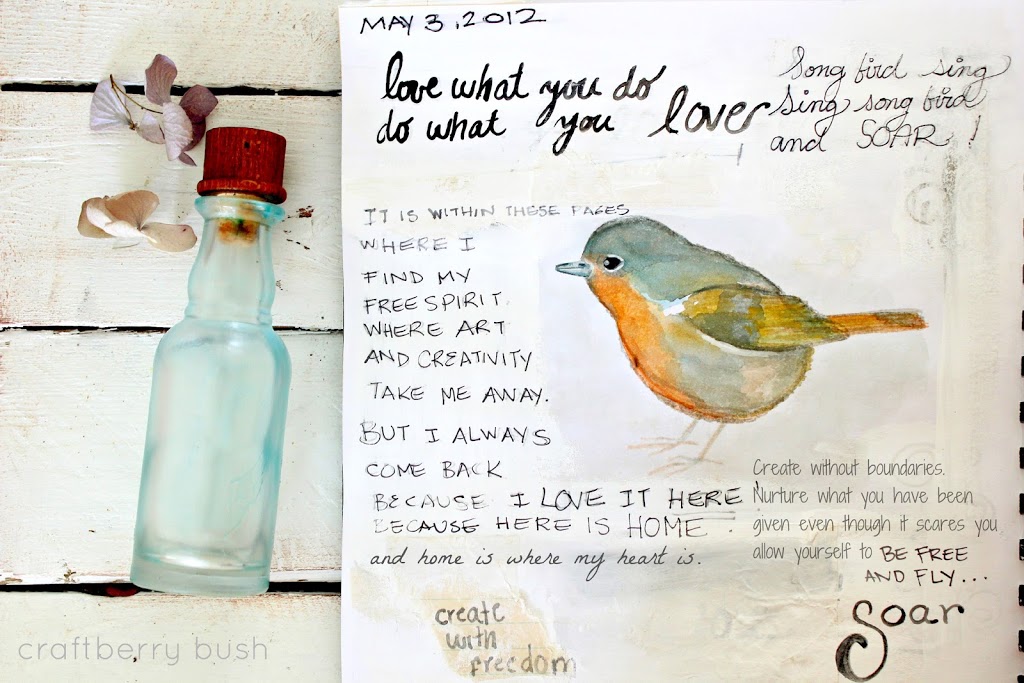 MAY 3, 2012
love what you do
do what you lover
Song bird sing
Sing song bird
and SOAR !
IT IS WITHIN THESE PAGES
WHERE I
FIND MY
FREE SPIRIT.
WHERE ART
AND CREATIVITY
TAKE ME AWAY.
BUT I ALWAYS
COME BACK
BECAUSE I LOVE IT HERE !
BECAUSE HERE IS HOME .
and home is where my heart is.
Create without boundaries.
Nurture what you have been
given even though it scares you,
allow yourself to BE FREE
AND FLY...
Soar
create
with
freedom
craftberry bush